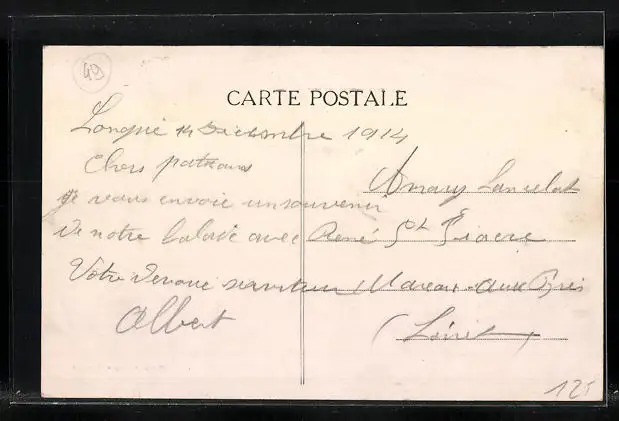 49
CARTE POSTALE
Longué 14 Décembre 1914
Chers patrons
je vous envoie un souvenir
de notre balade avec René
Votre dévoué serviteur
Albert
Amary Lancelot
Mareau-aux-Prés
(Loiret)
125